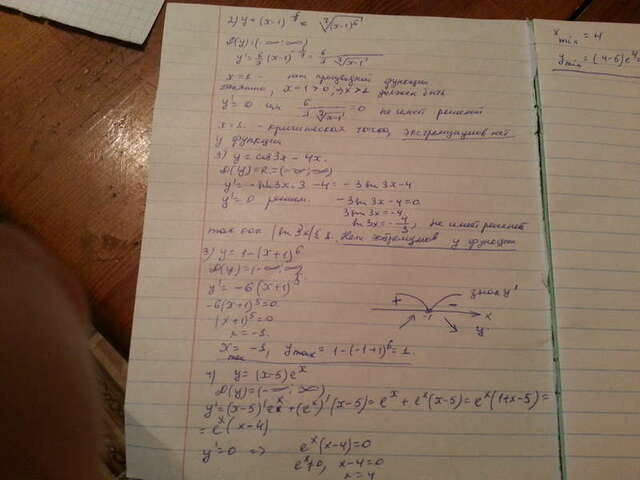 2) y = (x-1)^6/7 = ⁷√(x-1)⁶
D(y)=(-∞; ∞)
y' = 6/7 (x-1)
x=1 - нет производной функции
x-1>0, должен быть
y'=0 =0 не имеет решений
x=1 - критическая точка, экстремумов нет
у функции
3) y = cos3x - 4x.
D(y)=R=(-∞; ∞)
y' = -sin3x·3 -4 = -3sin3x-4
y'=0 решим. -3sin3x-4=0
3sin3x=-4
sin3x=-4/3, не имеет решений
так как |sin3x|≤1. Нет экстремумов у функции
3) y=1-(x+1)⁶
D(y)=(-∞; ∞)
y'=-6(x+1)⁵
-6(x+1)⁵=0
(x+1)⁵=0
x=-1.
+ - знак y'
-1 x
y
x max = -1, y max = 1-(-1+1)⁶=1.
4) y=(x-5)eˣ
D(y)=(-∞; ∞)
y'=(x-5)'eˣ+(eˣ)'(x-5)=eˣ+eˣ(x-5)=eˣ(1+x-5)=
=eˣ(x-4)
y'=0 => eˣ(x-4)=0
eˣ≠0, x-4=0
x=4
x min = 4
y min = (4-5)e⁴=